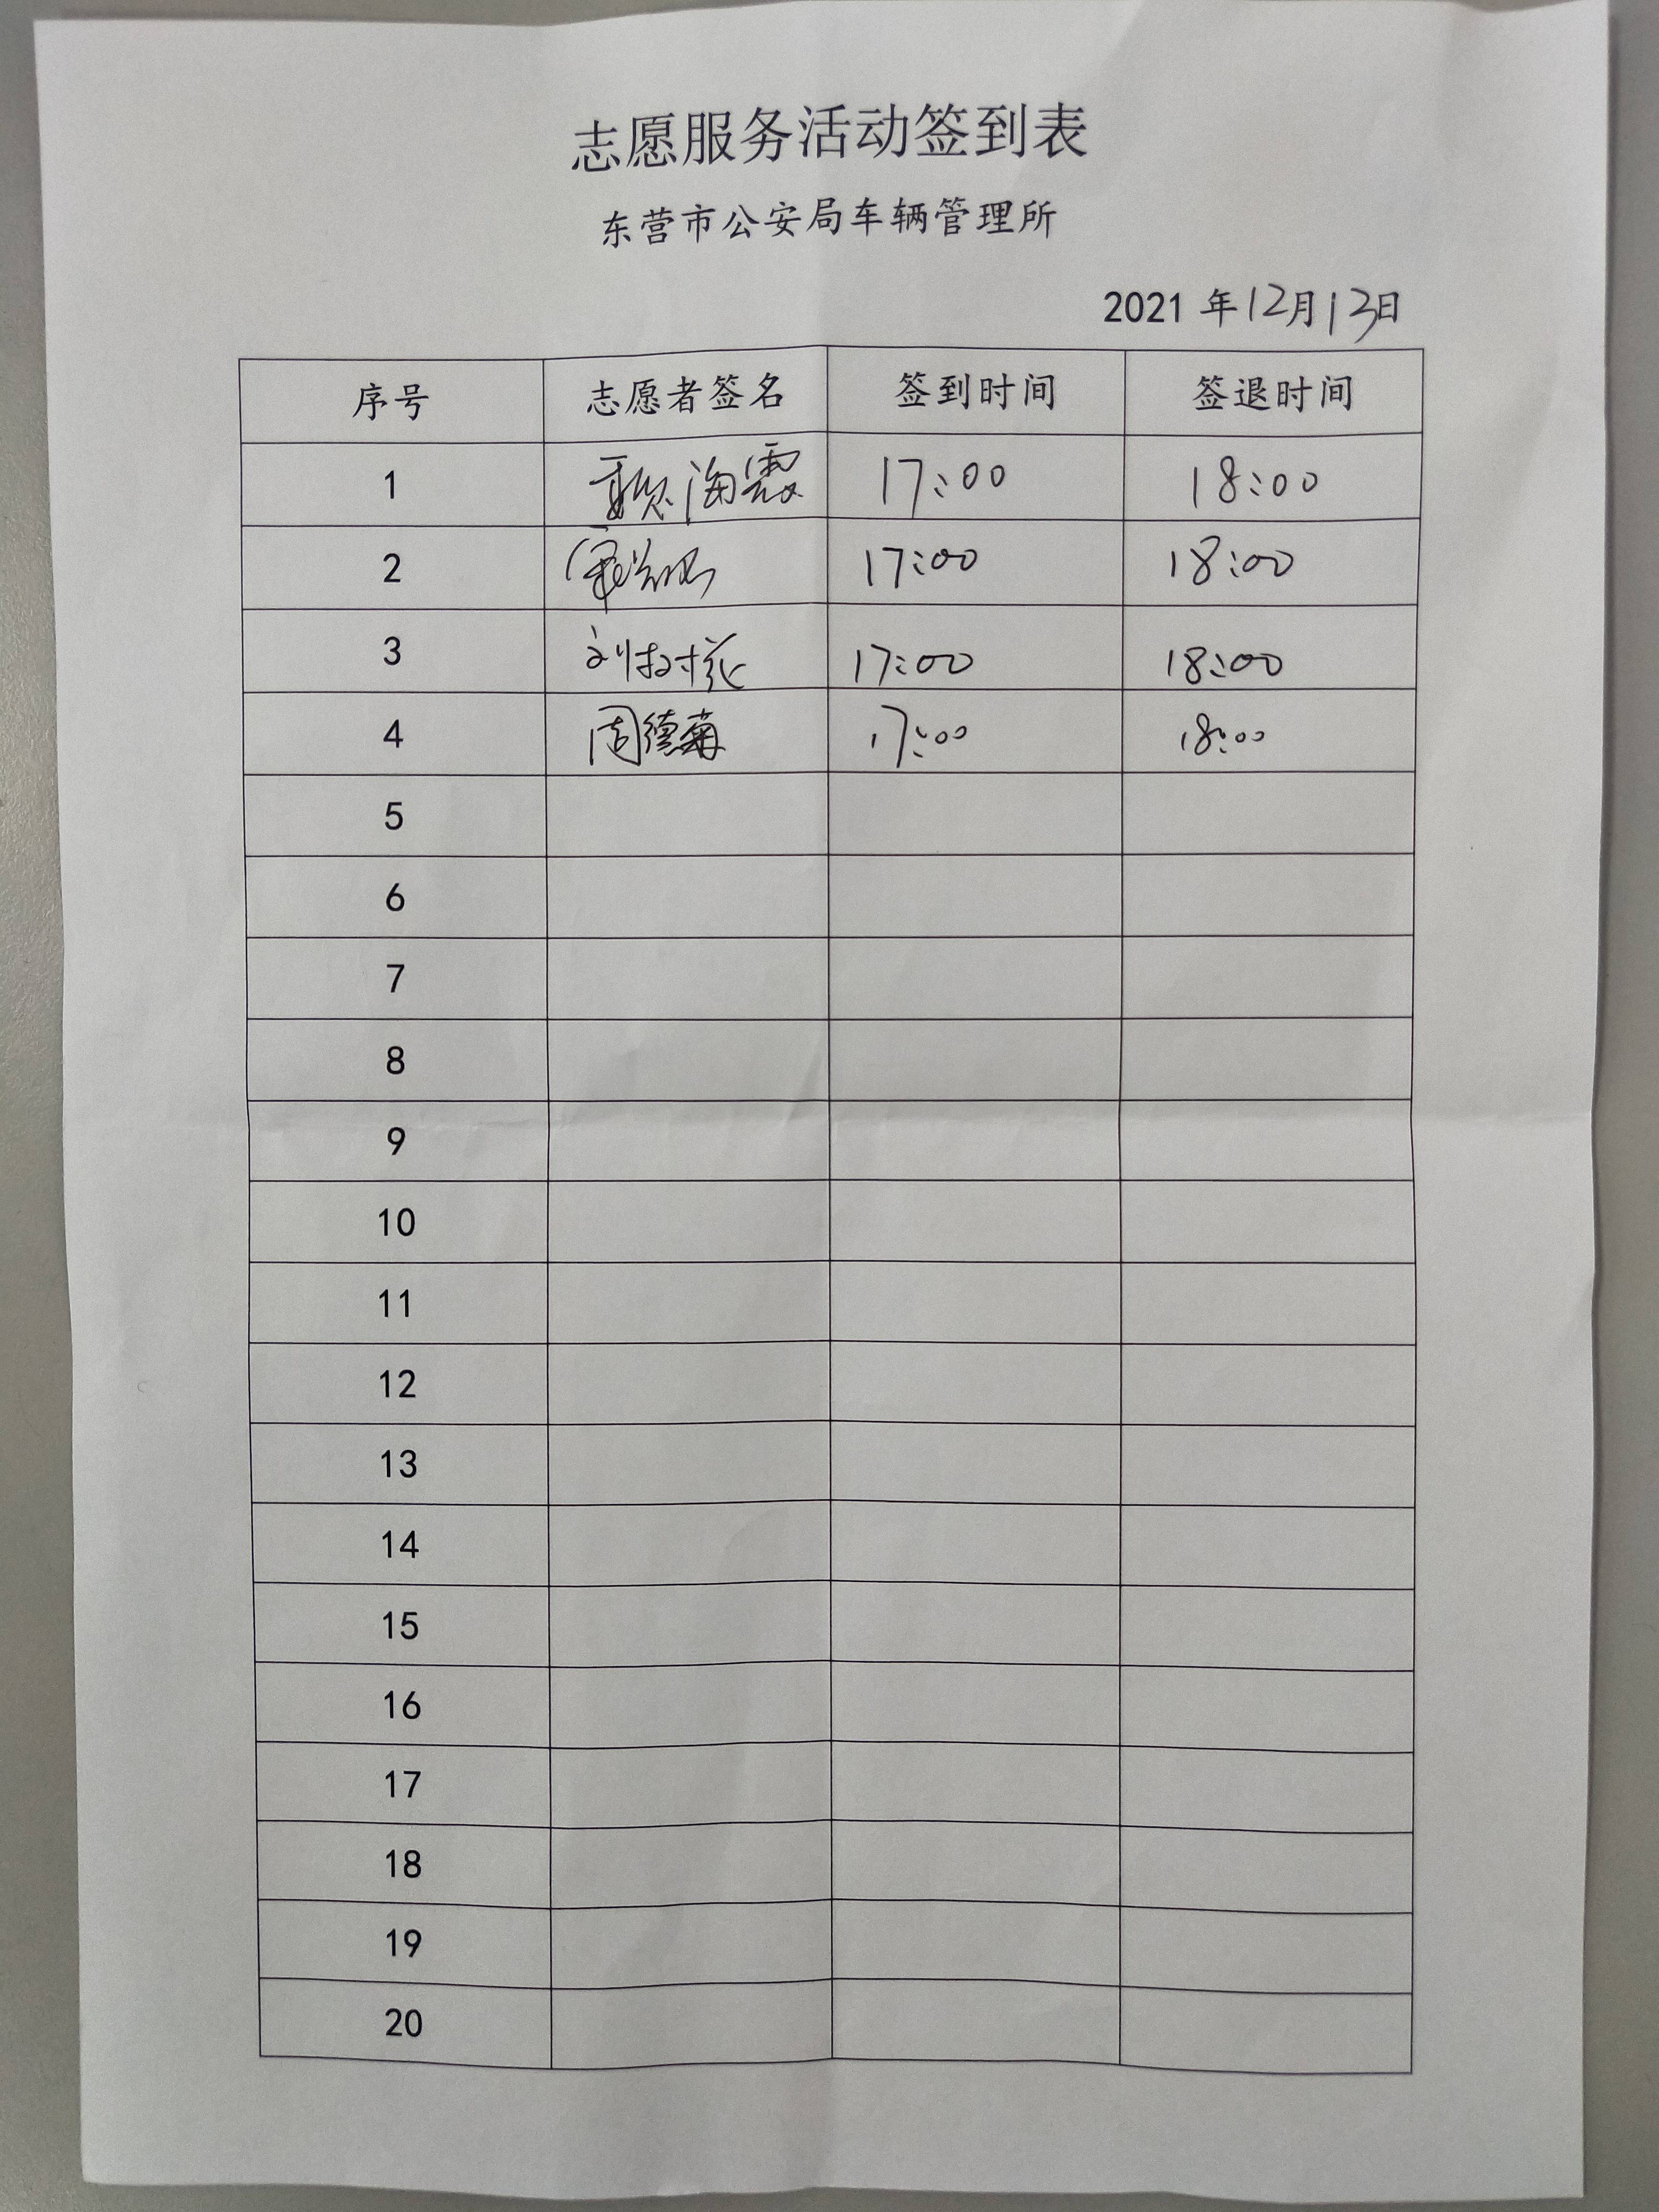 志愿服务活动签到表
东营市公安局车辆管理所
2021 年12月13日
序号 志愿者签名 签到时间 签退时间
1 海霞 17:00 18:00
2 17:00 18:00
3 刘树 17:00 18:00
4 周德菊 17:00 18:00
5
6
7
8
9
10
11
12
13
14
15
16
17
18
19
20